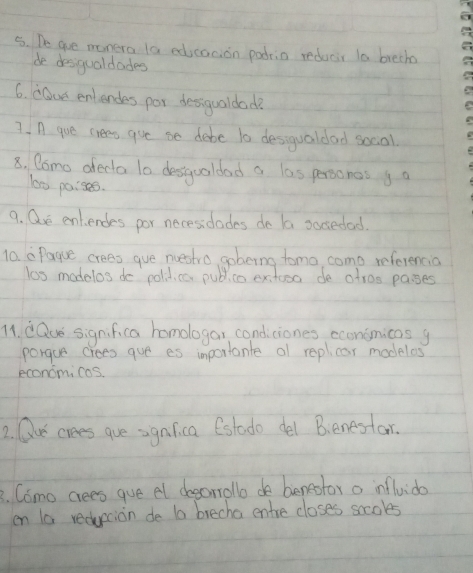 5. De que manera la educación podria reducir la brecha
de desigualdades
6. ¿Qué entiendes por desigualdad?
7. A que crees que se debe la desigualdad social.
8. Cómo afecta la desigualdad a las personas y a
los paises.
9. Qué entiendes por necesidades de la sociedad.
10 ¿Porque crees que nuestro gobierno toma como referencia
los modelos de politica publica exitosa de otros paises
11. ¿Qué significa homologar condiciones económicas y
porque crees que es importante al replicar modelos
económicos.
2. Qué crees que significa Estado del Bienestar.
3. Cómo crees que el desarrollo de bienestar a influido
en la reducción de la brecha entre clases sociales